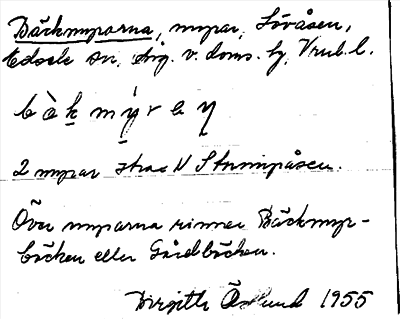 Bäckmyrarna, myrar, Lövåsen,
Edsele sn, Ång. v. doms. hg, Vrml. l.
bàkmýray
2 myrar strax N Stumpåsen.
Över myrarna rinner Bäckmyr-
bäcken eller Gårdbäcken.
Birgitta Östlund 1955